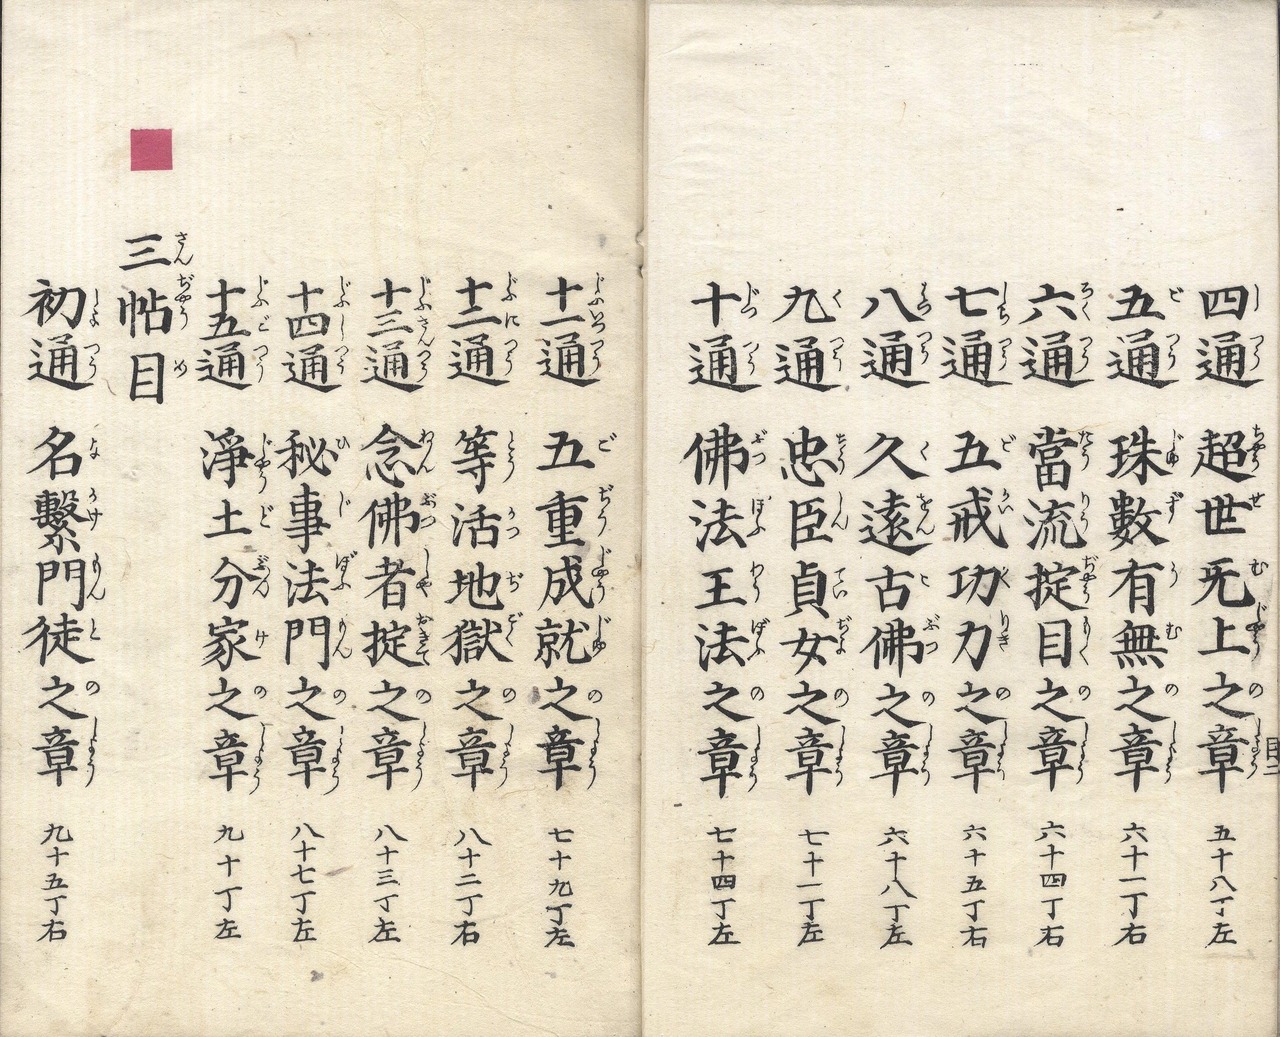 四通 超世无上之章 五十八丁左
五通 珠數有無之章 六十一丁右
六通 當流掟目之章 六十四丁右
七通 五戒功力之章 六十五丁右
八通 久遠古佛之章 六十八丁左
九通 忠臣貞女之章 七十一丁左
十通 佛法王法之章 七十四丁左
十一通 五重成就之章 七十九丁左
十二通 等活地獄之章 八十二丁右
十三通 念佛者掟之章 八十三丁左
十四通 秘事法門之章 八十七丁左
十五通 淨土分家之章 九十丁左
三帖目
初通 名繫門徒之章 九十五丁右